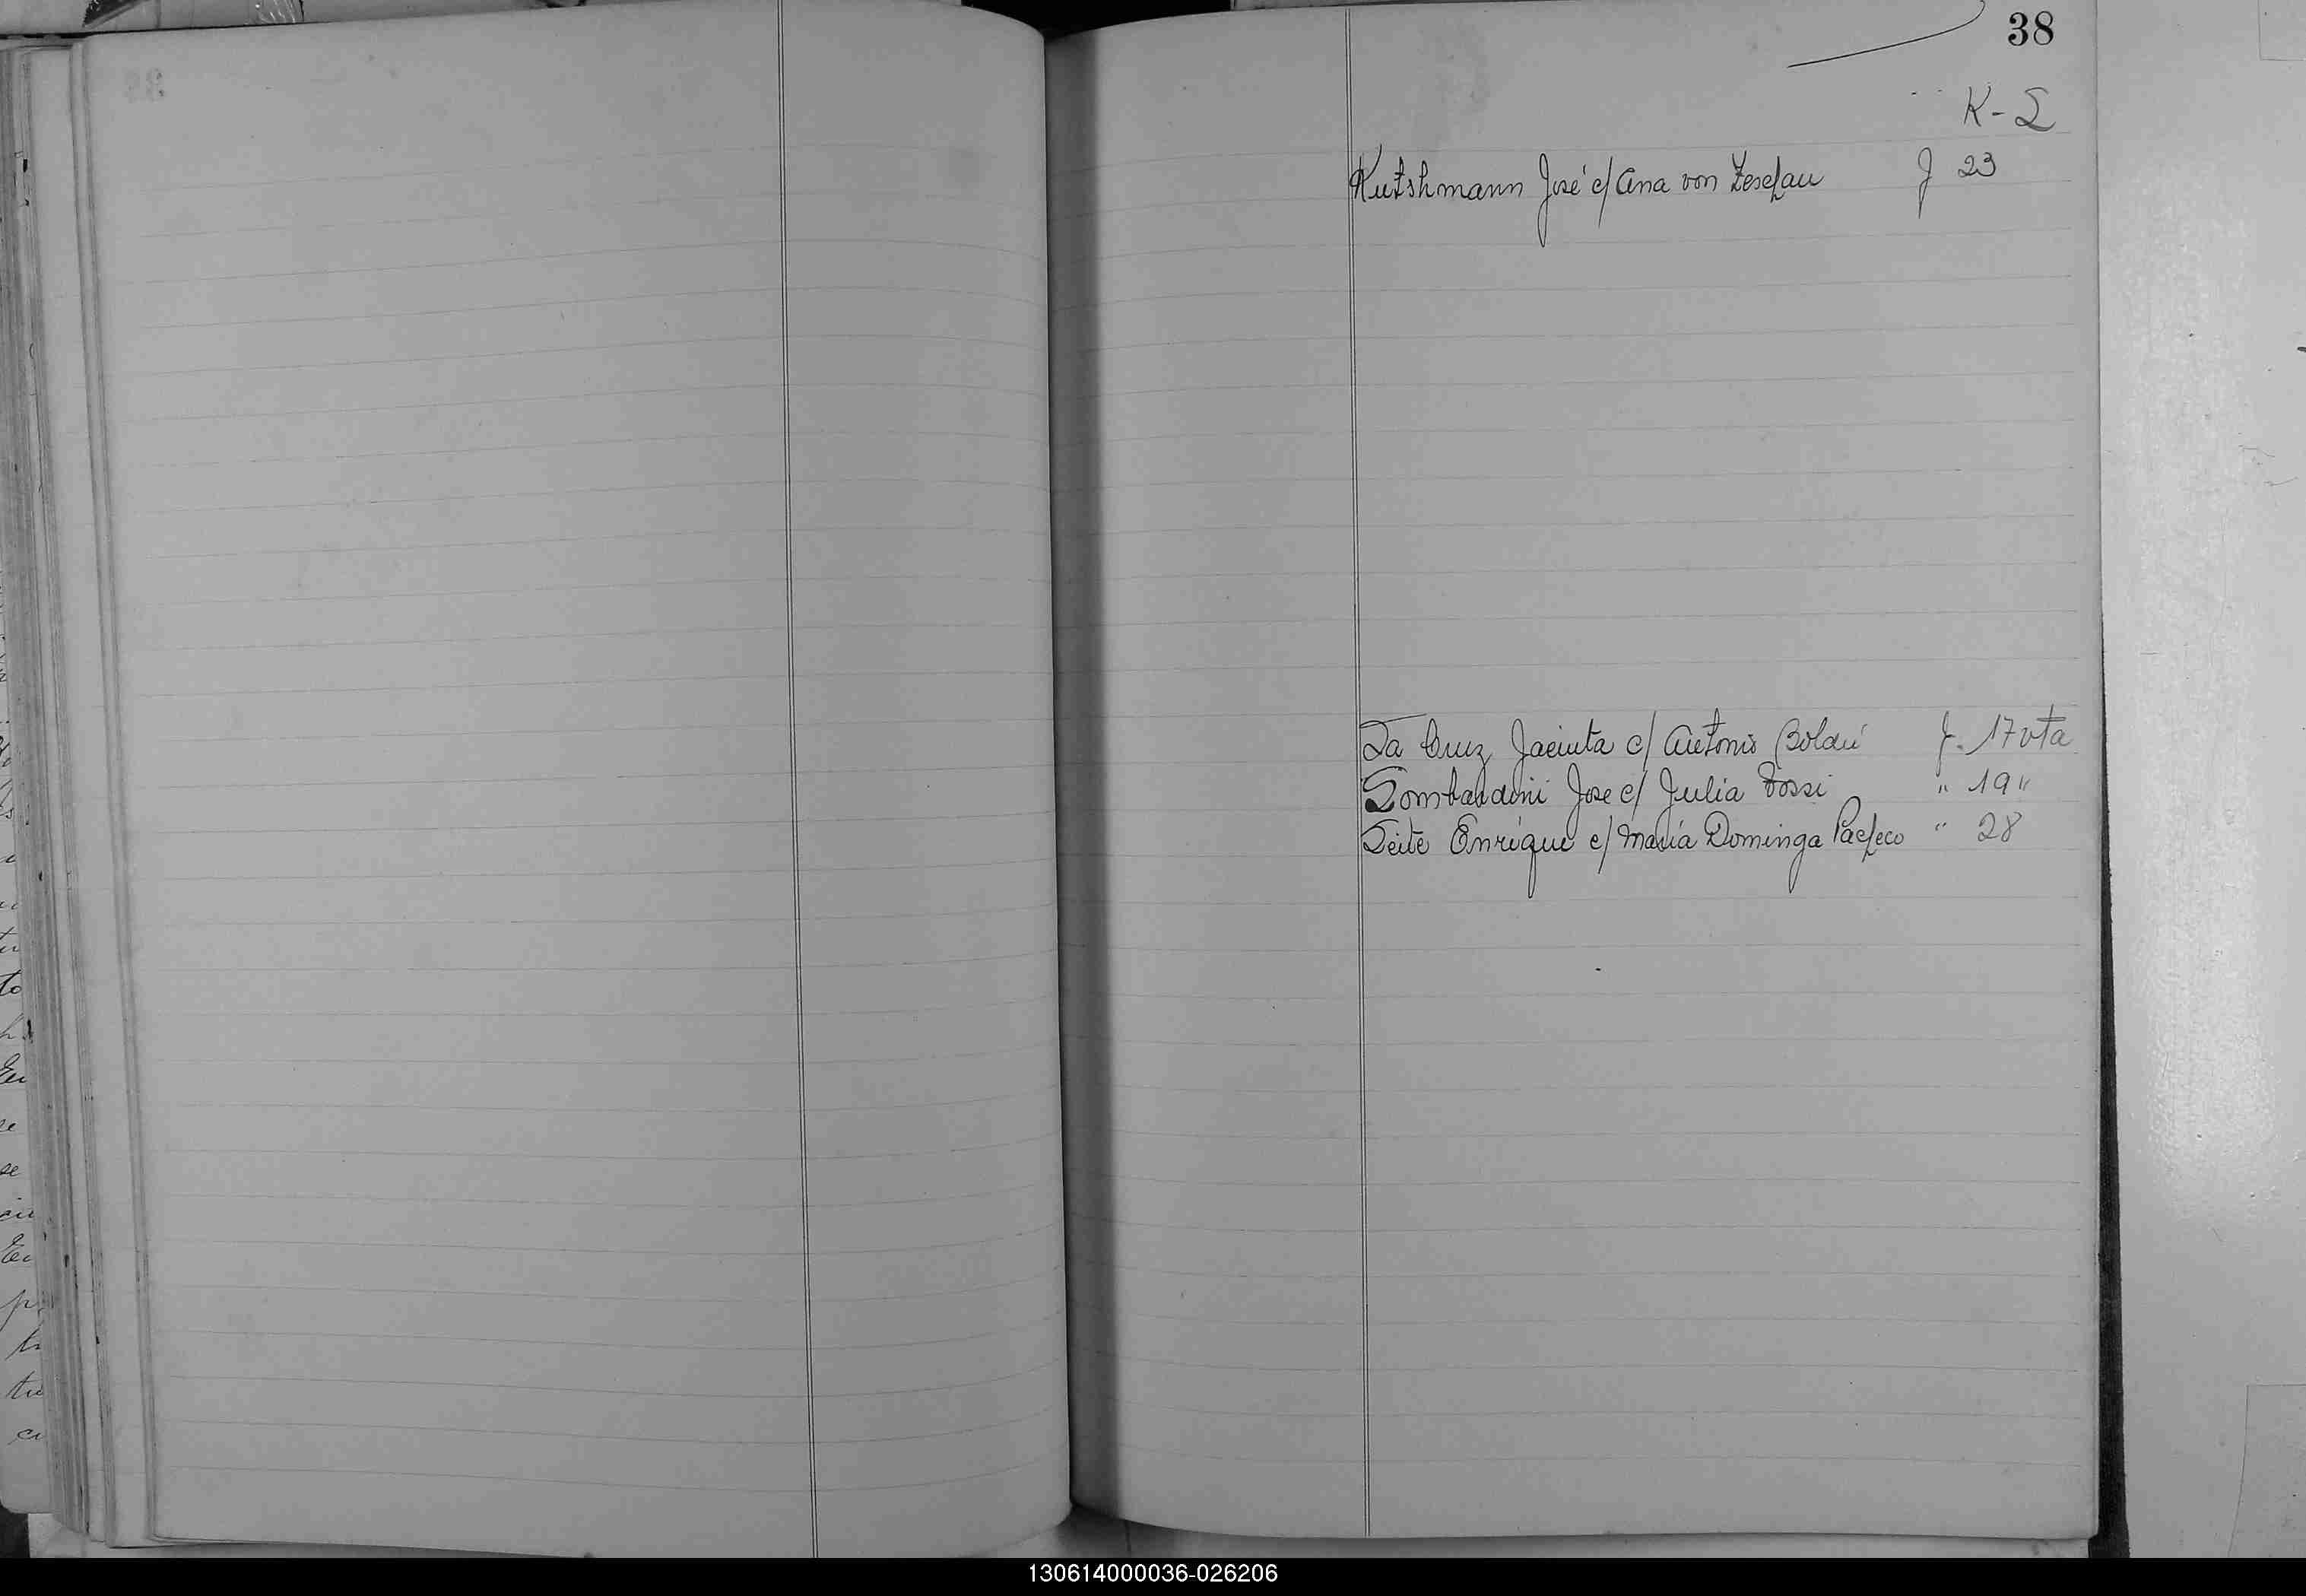 38
K - L
Kutshmann José c/ Ana von Zeschau f 23
La Cruz Jacinta c/ Antonio Boldú f. 17 vta
Lombardini Jose c/ Julia Tossi " 19 "
Leite Enrique c/ Maria Dominga Pacheco " 28
130614000036-026206